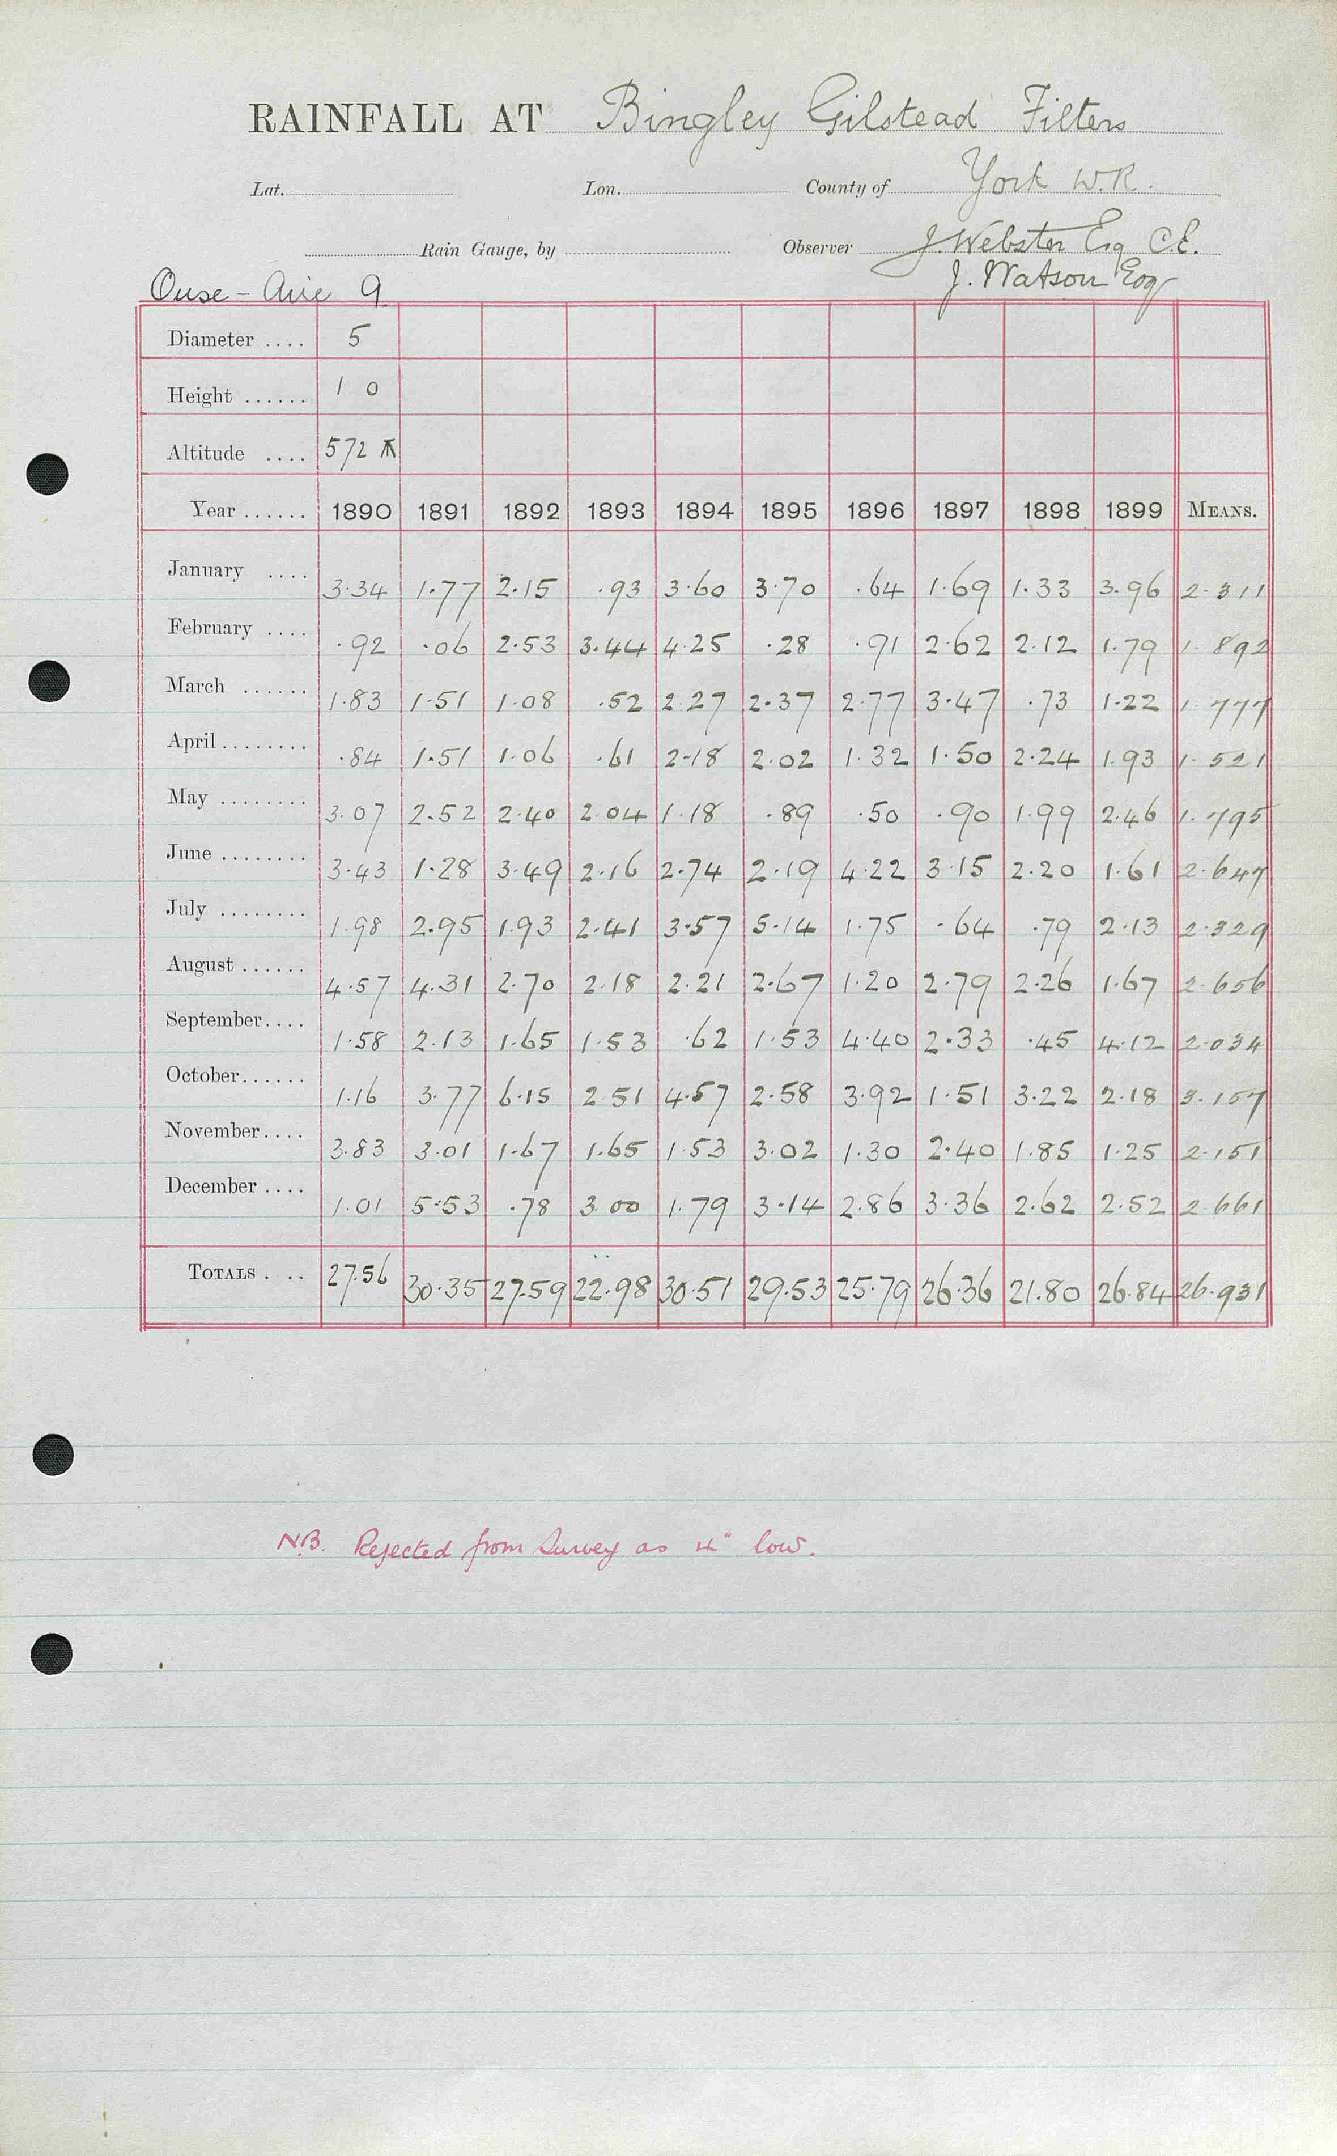 RAINFALL AT Bingley Gilstead Filters
Lat. Lon. County of York W.R.
Rain Gauge, by Observer J. Webster Esq C.E.
Ouse - Aire 9 J. Watson Esq
Diameter .... 5
Height ...... 1 0
Altitude .... 572
Year ...... 1890 1891 1892 1893 1894 1895 1896 1897 1898 1899 MEANS.
January .... 3.34 1.77 2.15 .93 3.60 3.70 .64 1.69 1.33 3.96 2.311
February .... .92 .06 2.53 3.44 4.25 .28 .91 2.62 2.12 1.79 1.892
March ...... 1.83 1.51 1.08 .52 2.27 2.37 2.77 3.47 .73 1.22 1.777
April ........ .84 1.51 1.06 .61 2.18 2.02 1.32 1.50 2.24 1.93 1.521
May ........ 3.07 2.52 2.40 2.04 1.18 .89 .50 .90 1.99 2.46 1.795
June ........ 3.43 1.28 3.49 2.16 2.74 2.19 4.22 3.15 2.20 1.61 2.647
July ........ 1.98 2.95 1.93 2.41 3.57 5.14 1.75 .64 .79 2.13 2.329
August ...... 4.57 4.31 2.70 2.18 2.21 2.67 1.20 2.79 2.26 1.67 2.656
September .... 1.58 2.13 1.65 1.53 .62 1.53 4.40 2.33 .45 4.12 2.034
October ...... 1.16 3.77 6.15 2.51 4.57 2.58 3.92 1.51 3.22 2.18 3.157
November .... 3.83 3.01 1.67 1.65 1.53 3.02 1.30 2.40 1.85 1.25 2.151
December .... 1.01 5.53 .78 3.00 1.79 3.14 2.86 3.36 2.62 2.52 2.661
TOTALS .... 27.56 30.35 27.59 22.98 30.51 29.53 25.79 26.36 21.80 26.84 26.931
NB. Rejected from Survey as 4" low.